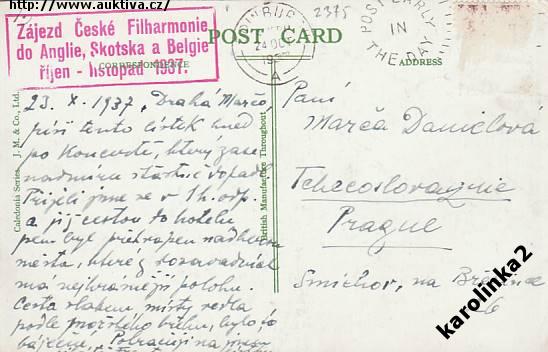 http://www.auktiva.cz/
Zájezd České Filharmonie
do Anglie, Skotska a Belgie
říjen - listopad 1937.
2375
POST CARD
CORRESPONDENCE
ADDRESS
POST EARLY
IN
THE DAY
24 OCT
A
Caledonia Series. J. M. & Co., Ltd.
British Manufacture Throughout
23. X. 1937. Drahá Marčo,
píši tento lístek hned
po koncertě, který zase
nadmíru šťastně dopadl.
Přijeli jsme sem v 1 h. odp.
a již cestou do hotelu
jsem byl překvapen nádherou
města, které
má nejkrásnější polohu.
Cesta vlakem, místy vedla
podle mořského břehu, bylo to
báječné.
Paní
Marča Danielová
Tchecoslovaquie
Prague
Smíchov, na
26
karolinka2